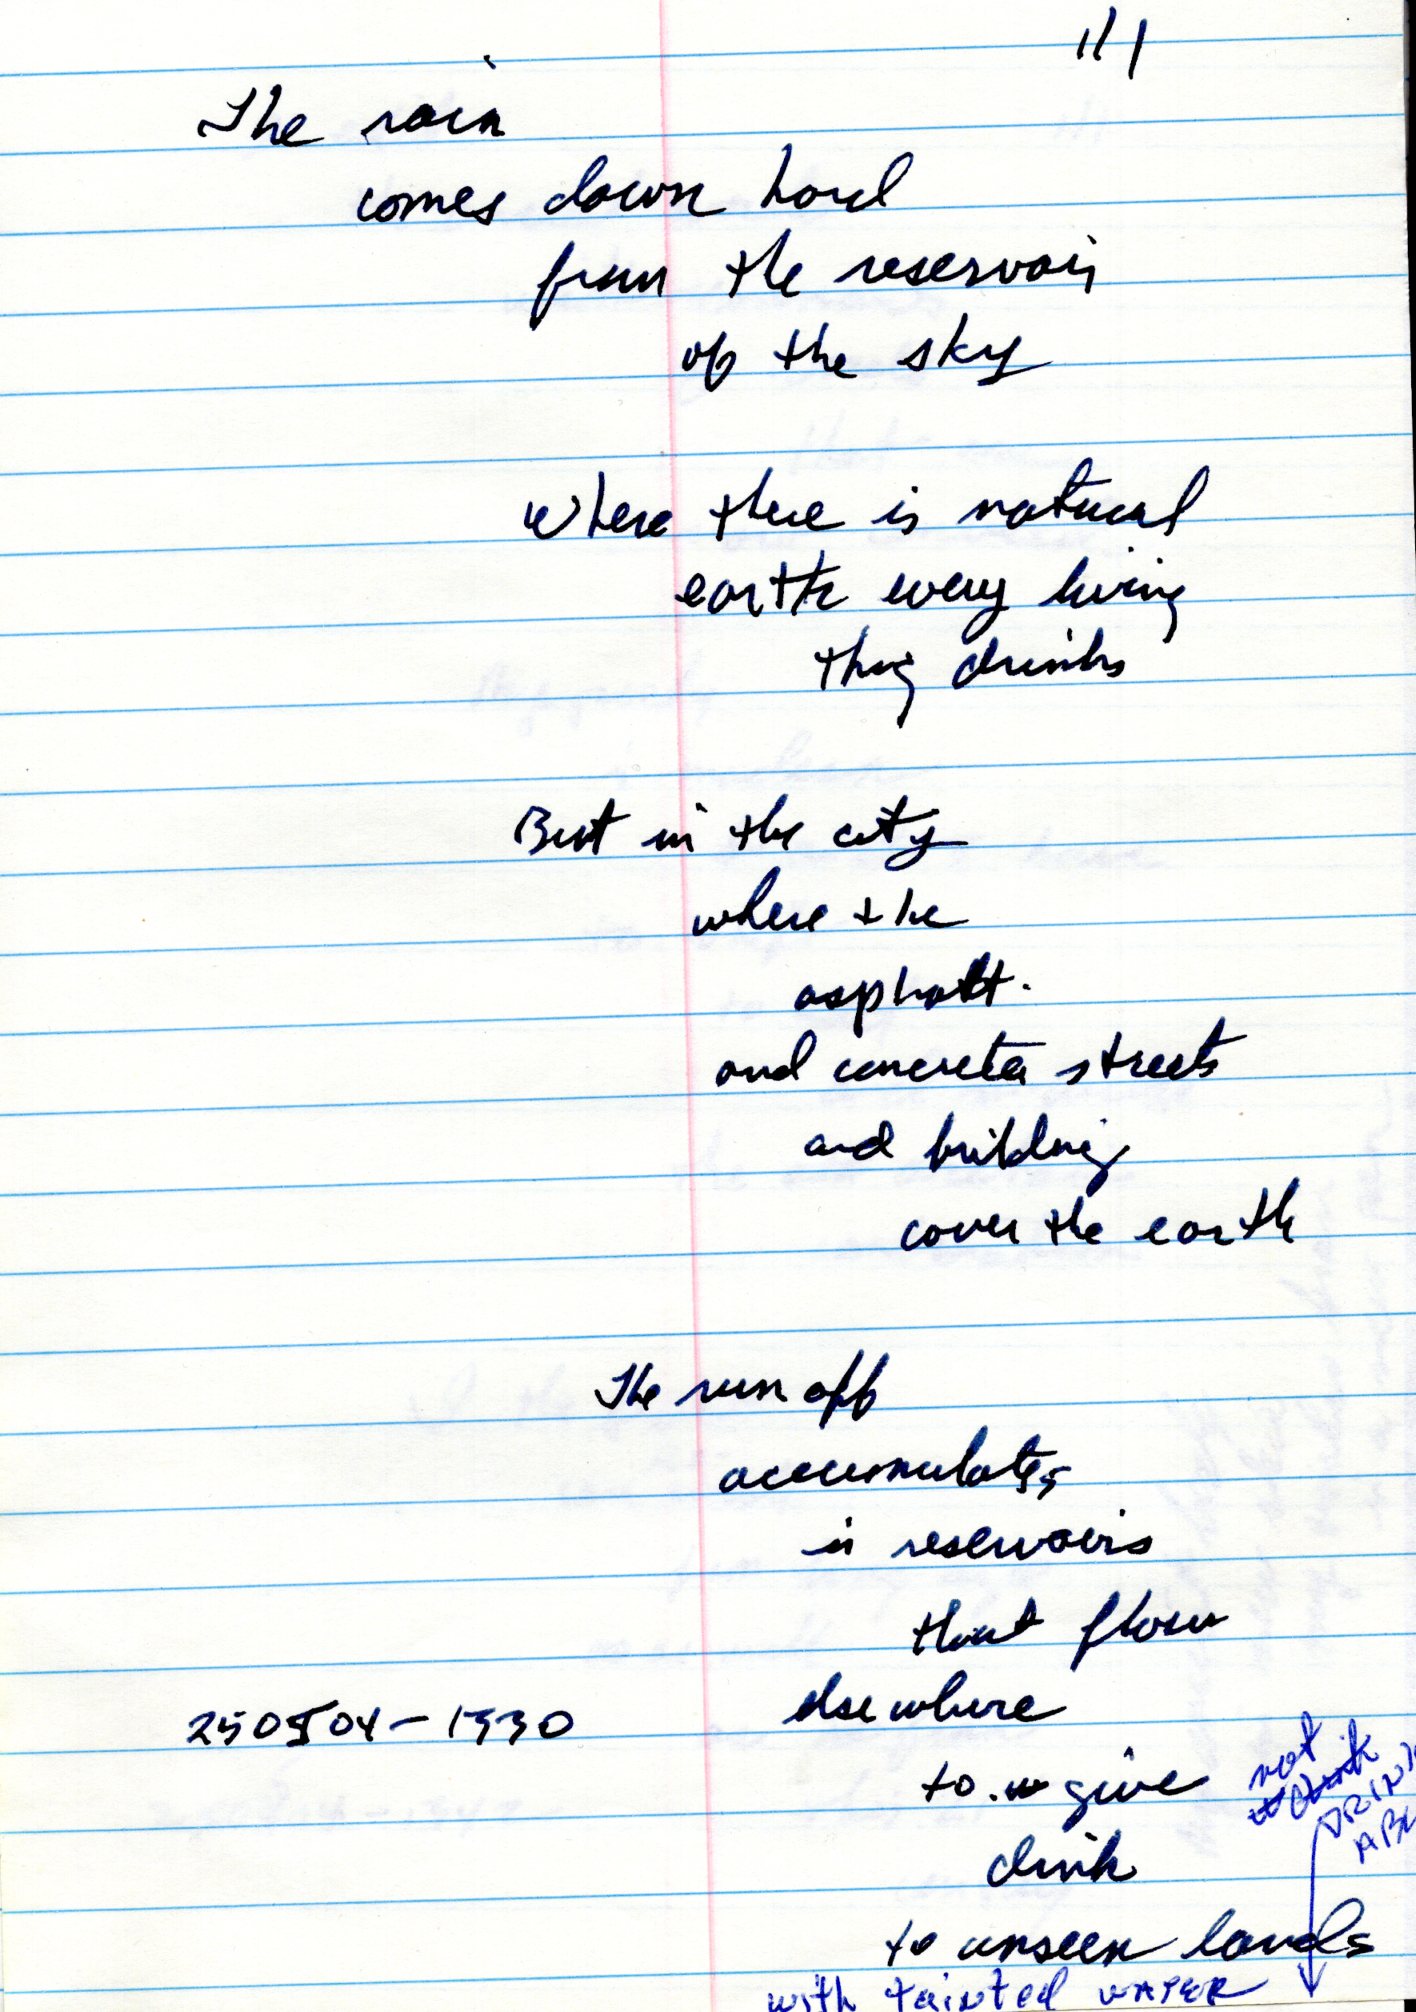 111
The rain
comes down hard
from the reservoir
of the sky
Where there is natural
earth every living
thing drinks
But in the city
where the
asphalt
and concrete streets
and building
cover the earth
The run off
accumulates
in reservoirs
that flow
250504-1330
elsewhere
to give
drink
to unseen lands
with tainted water
not
DRINK
ABL